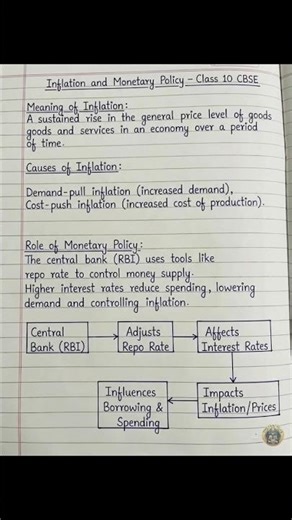 Inflation and Monetary Policy – Class 10 CBSE
Meaning of Inflation:
A sustained rise in the general price level of goods
goods and services in an economy over a period
of time.
Causes of Inflation:
Demand-pull inflation (increased demand),
Cost-push inflation (increased cost of production).
Role of Monetary Policy:
The central bank (RBI) uses tools like
repo rate to control money supply.
Higher interest rates reduce spending, lowering
demand and controlling inflation.
Central
Bank (RBI)
Adjusts
Repo Rate
Affects
Interest Rates
Impacts
Inflation/Prices
Influences
Borrowing &
Spending